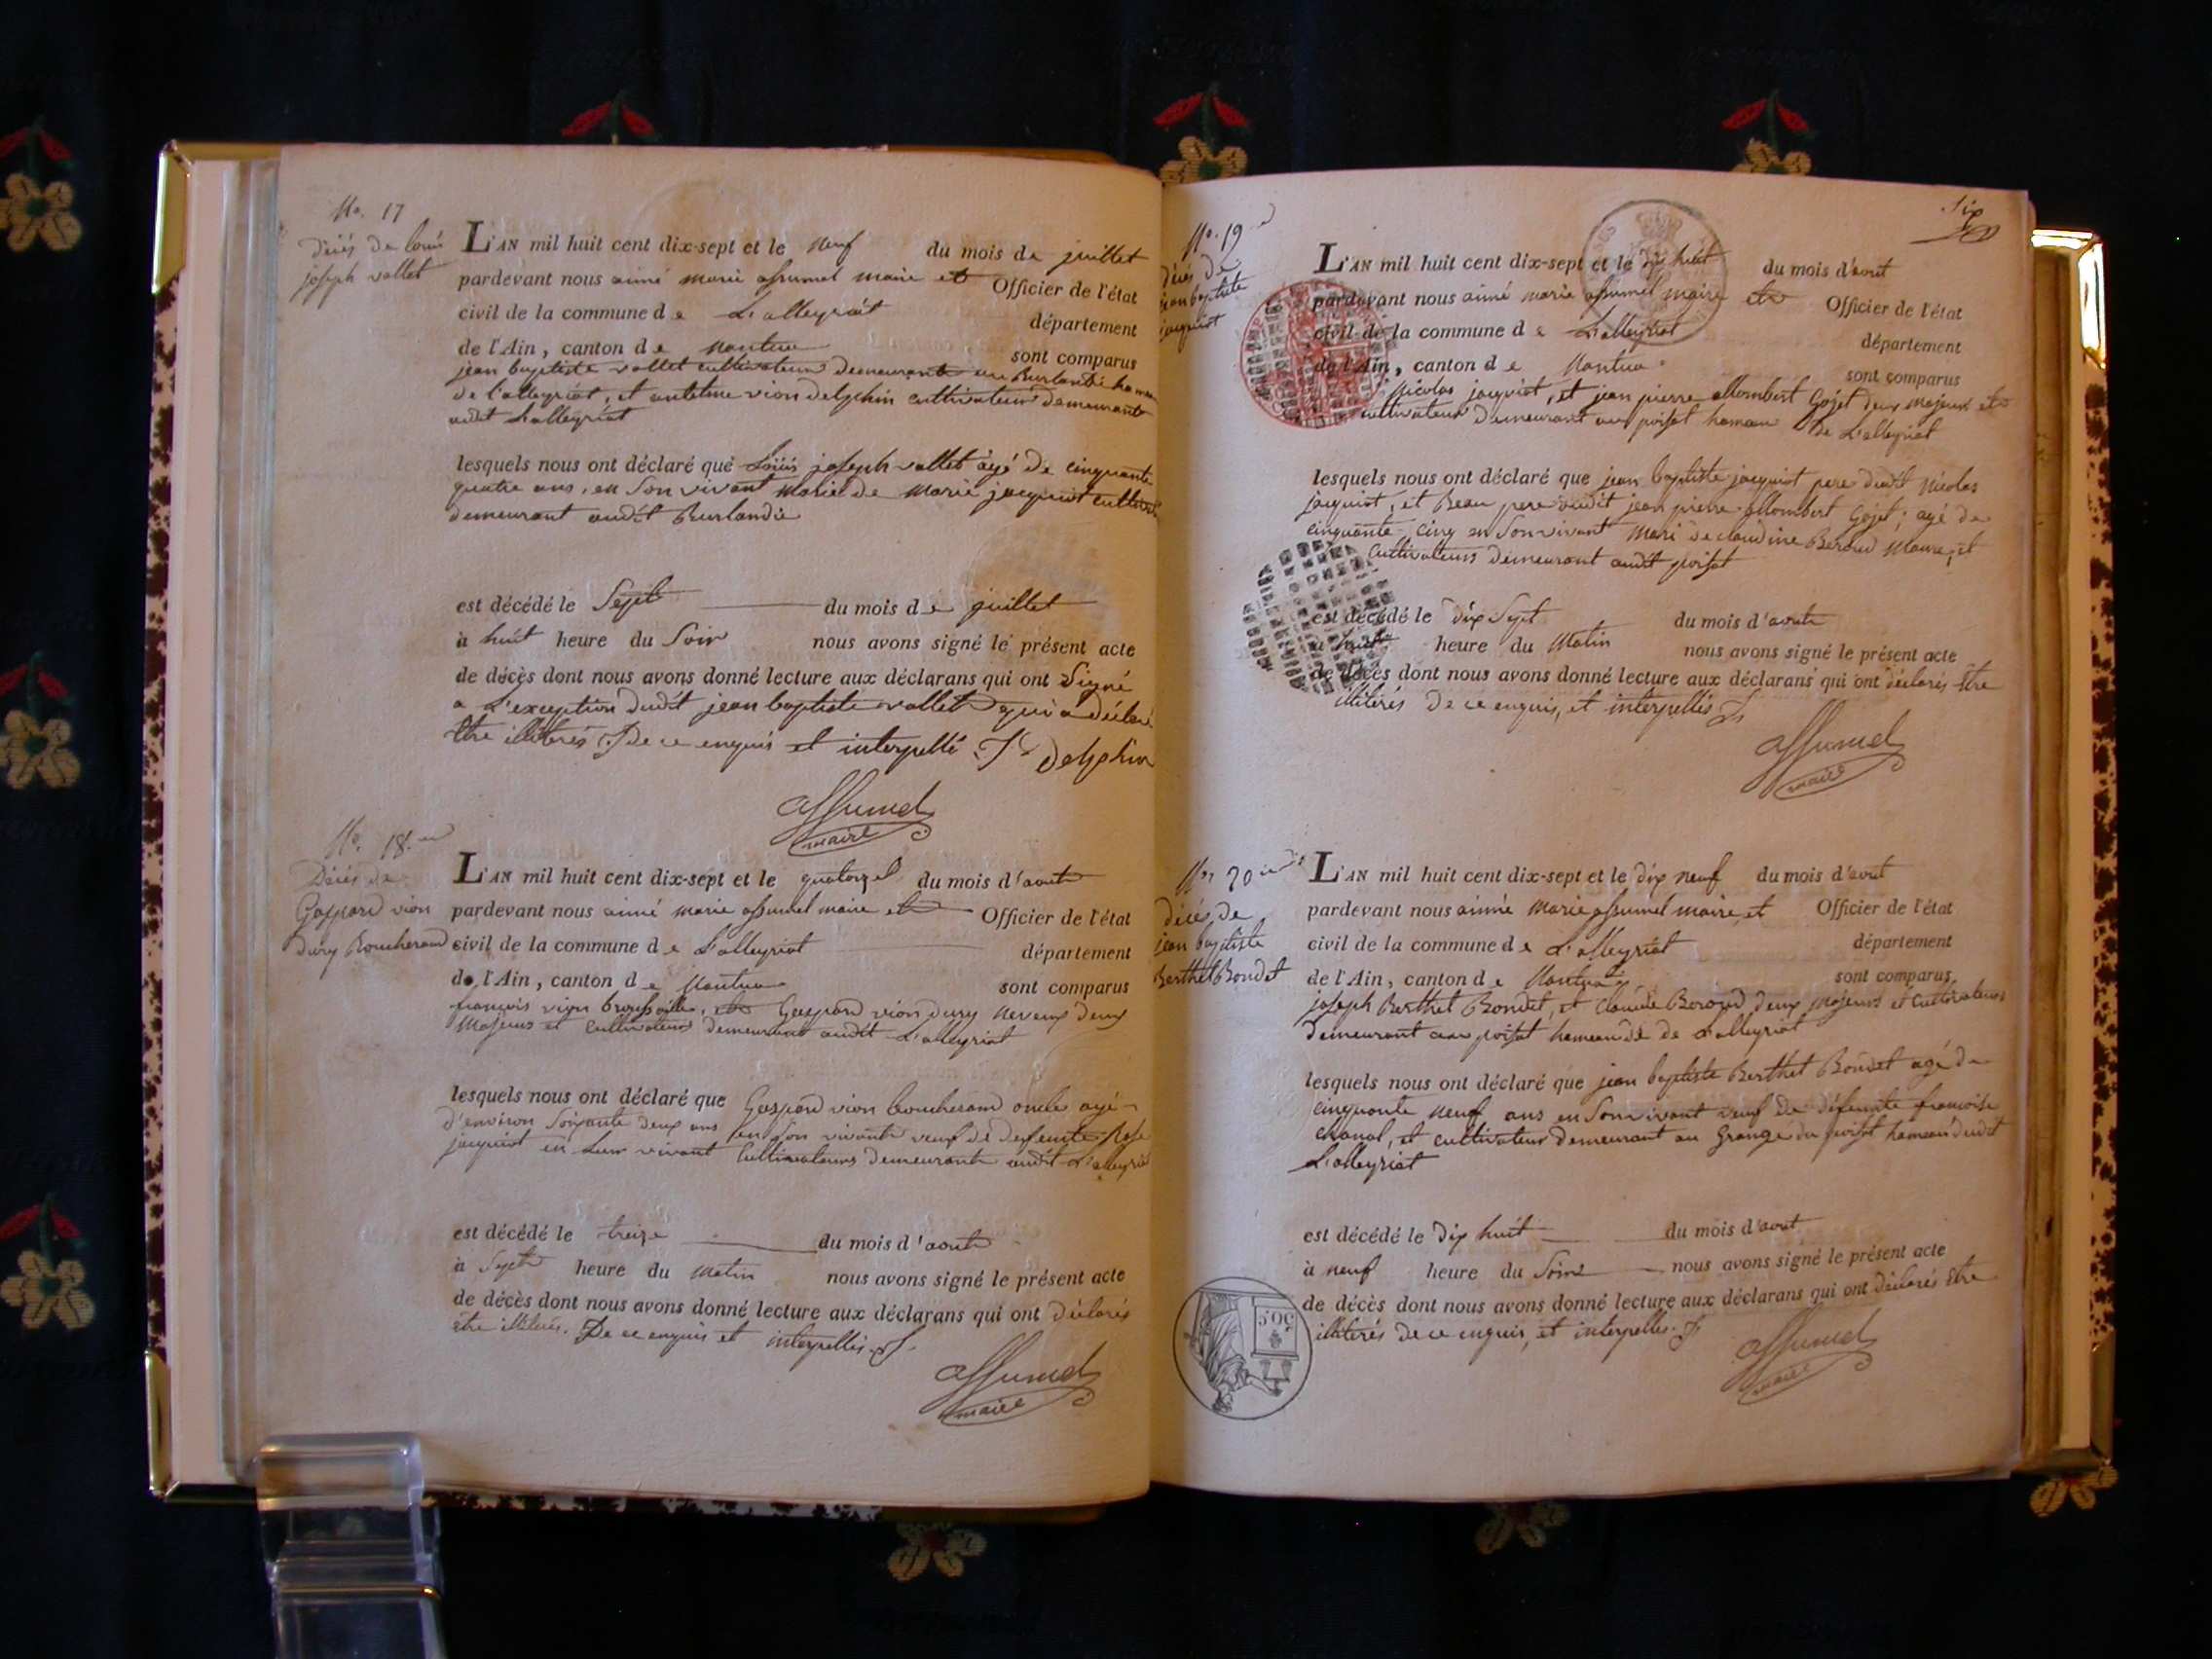 No. 17
Décès de Louis
joseph vallet
L'AN mil huit cent dix-sept et le neuf du mois de juillet
pardevant nous aimé marie assumel maire et Officier de l'état
civil de la commune de L'alleyriat département
de l'Ain, canton de Nantua sont comparus
jean baptiste vallet cultivateur demeurant au Burlandie hameau
de l'alleyriat, et antelme vion delphin cultivateur demeurant
audit L'alleyriat
lesquels nous ont déclaré que Loüis joseph vallet âgé de cinquante
quatre ans, en son vivant marie de marie jacquiot cultivateur
demeurant audit Burlandie
est décédé le Sept du mois de juillet
à huit heure du Soir nous avons signé le présent acte
de décès dont nous avons donné lecture aux déclarans qui ont Signé
a L'exception dudit jean baptiste vallet qui a déclaré
être illiterés de ce enquis et interpellé Delphin
assumel
maire
No. 18
Décès de
Gaspard vion
dury Boucherand
L'AN mil huit cent dix-sept et le quatorze du mois d'aout
pardevant nous aimé marie assumel maire et Officier de l'état
civil de la commune de L'alleyriat département
de l'Ain, canton de Nantua sont comparus
françois vion et Gaspard vion dury neveux deux
Majeurs et cultivateurs demeurant audit L'alleyriat
lesquels nous ont déclaré que Gaspard vion boucherand oncle agé
d'environ soixante deux ans en son vivant veuf de defeunte Rose
jacquiot en Leur vivant Cultivateurs demeurant audit L'alleyriat
est décédé le treize du mois d'aout
à Sept heure du matin nous avons signé le présent acte
de décès dont nous avons donné lecture aux déclarans qui ont déclarés
être illiterés. De ce enquis et interpellés
assumel
maire
Six
No. 19
Décès de
jean baptiste
jacquiot
L'AN mil huit cent dix-sept et le dix huit du mois d'aout
pardevant nous aimé marie assumel maire et Officier de l'état
civil de la commune de L'alleyriat département
de l'Ain, canton de Nantua sont comparus
Nicolas jacquiot, et jean pierre allombert Gojet deux majeurs et
cultivateurs demeurant au poisat hameau de L'alleyriat
lesquels nous ont déclaré que jean baptiste jacquiot pere dudit Nicolas
jacquiot, et Beau pere dudit jean pierre allombert Gojet; agé de
cinquante cinq en Son vivant Mari de claudine Beroud et
cultivateurs demeurant audit poisat
est décédé le dix Sept du mois d'aout
à heure du Matin nous avons signé le présent acte
de décès dont nous avons donné lecture aux déclarans qui ont déclarés être
illiterés De ce enquis, et interpellés
assumel
maire
No 20
décés de
jean baptiste
Berthet Bondet
L'AN mil huit cent dix-sept et le dix neuf du mois d'aout
pardevant nous aimé Marie assumel maire et Officier de l'état
civil de la commune de L'alleyriat département
de l'Ain, canton de Nantua sont comparus
joseph Berthet Bondet, et Claude Beroud deux majeurs et Cultivateurs
demeurant au poisat hameau de de L'alleyriat
lesquels nous ont déclaré que jean baptiste Berthet Bondet agé de
cinquante neuf ans en Son vivant veuf de défeunte françoise
chanal, et cultivateur demeurant au Grange du poisat hameau dudit
L'alleyriat
est décédé le Dix huit du mois d'aout
à neuf heure du Soir nous avons signé le présent acte
de décès dont nous avons donné lecture aux déclarans qui ont déclarés être
illiterés de ce enquis, et interpellés
50C
assumel
maire